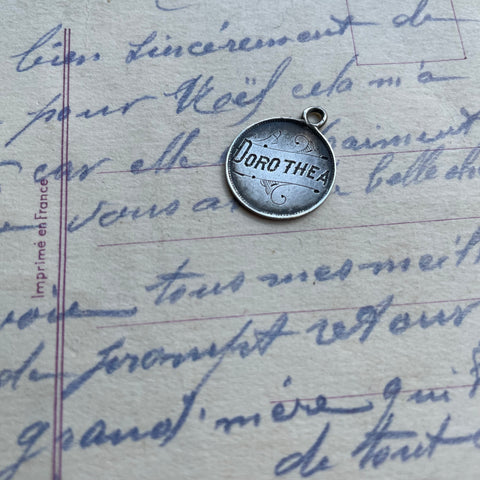 bien sincèrement de
pour Noël cela m'a
car elle
DOROTHEA
vous a belle
Imprimé en France
tous mes meil
du prompt retour
grand'mère qui
de tout